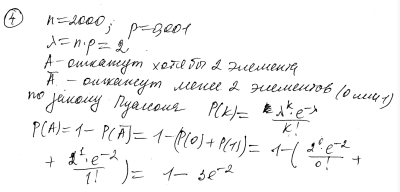 ④ n=2000; p=0,001
λ=n·p=2
A - откажут хотя бы 2 элемента
Ā - откажут менее 2 элементов (0 или 1)
по закону Пуассона P(k) = λ^k·e^-λ / k!
P(A) = 1 - P(Ā) = 1 - (P(0) + P(1)) = 1 - (2^0·e^-2 / 0! +
+ 2^1·e^-2 / 1!) = 1 - 3e^-2